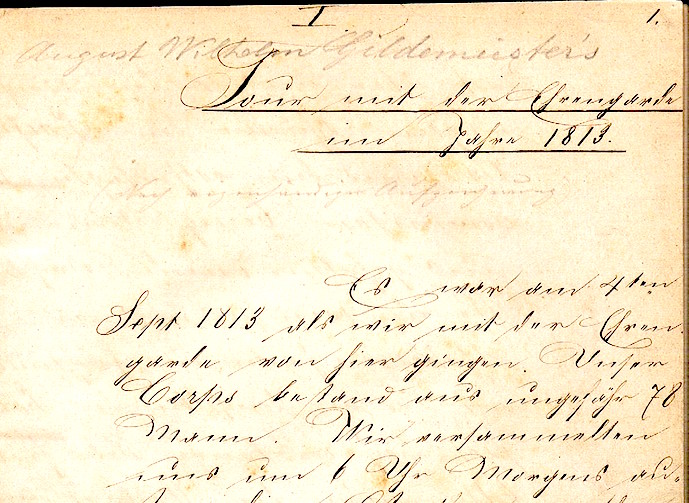 I 1.
August Wilhelm Gildemeister's
Tour mit der Ehrengarde
im Jahre 1813.
(Nach eigenhändiger Aufzeichnung)
Es war am 4ten
Sept 1813 als wir mit der Ehren
garde von hier gingen. Unser
Corps bestand aus ungefähr 78
Mann. Wir versammelten
uns um 6 Uhr Morgens au=